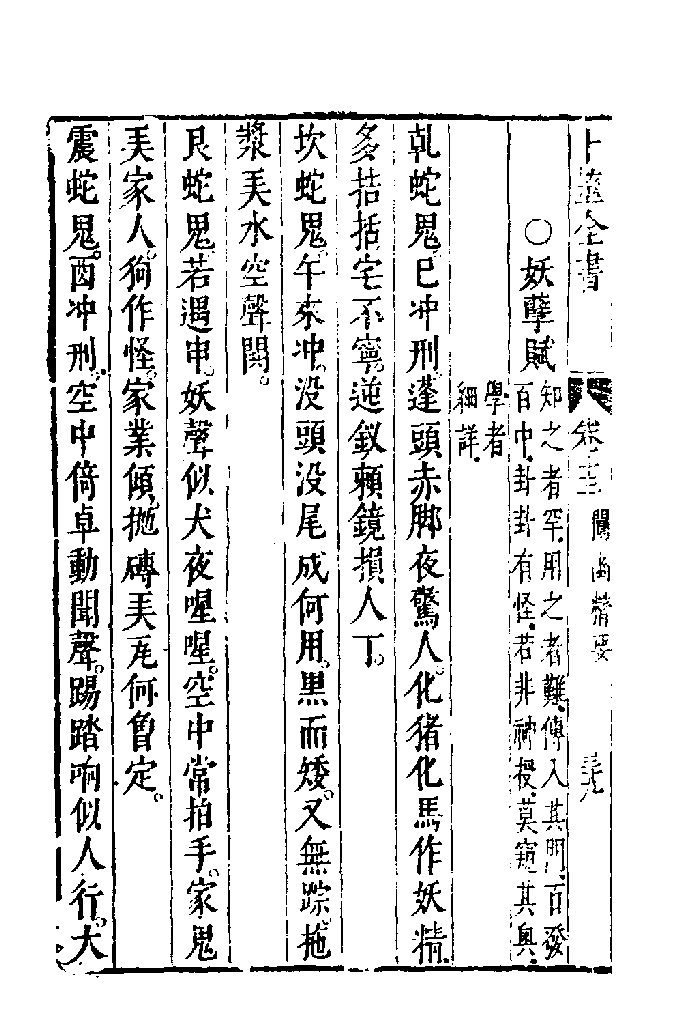 卜筮全書 卷十三 闡幽精要 三九
○妖孽賦 知之者罕用之者難傳入其門百發
百中卦卦有怪若非神授莫窺其奥
學者
細詳
乹蛇鬼巳冲刑蓬頭赤脚夜驚人化猪化馬作妖精
多拮括宅不寧逆釵賴鏡損人丁
坎蛇鬼午來冲没頭没尾成何用黒而矮又無踪拖
漿弄水空聲閧
艮蛇鬼若遇申妖聲似犬夜哩哩空中常拍手家鬼
弄家人狗作怪家業傾抛磚弄瓦何曾定
震蛇鬼酉冲刑空中倚卓動聞聲踢踏响似人行大